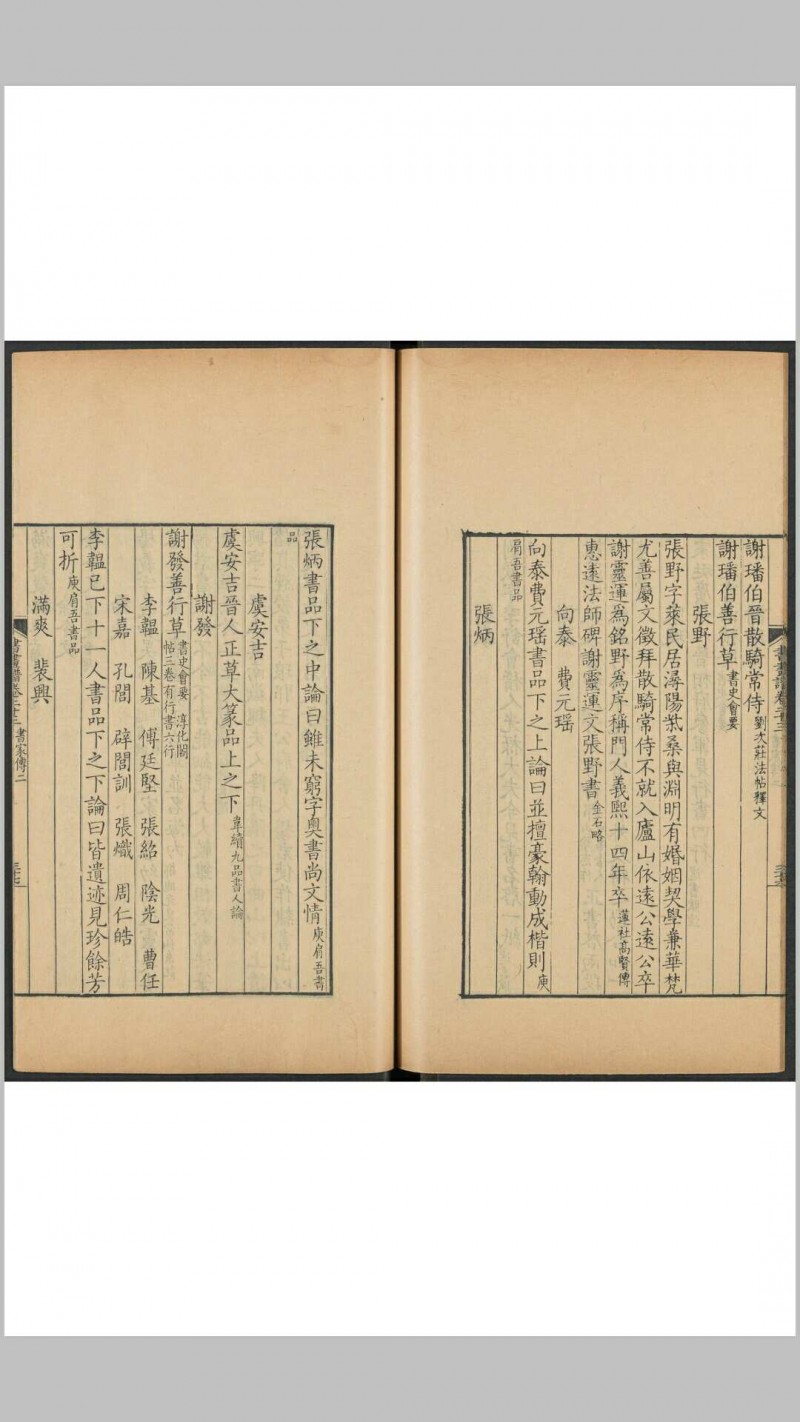 謝璠伯晉散騎常侍劉次莊法帖釋文
謝璠伯善行草書史會要
張野
張野字萊民居潯陽柴桑與淵明有婚姻契學兼華梵
尤善屬文徵拜散騎常侍不就入廬山依遠公遠公卒
謝靈運爲銘野爲序稱門人義熙十四年卒蓮社高賢傳
惠遠法師碑謝靈運文張野書金石略
向泰 費元瑶
向泰費元瑶書品下之上論曰並擅毫翰動成楷則庾
肩吾書品
張炳
張炳書品下之中論曰雖未窮字奧書尚文情庾肩吾書
品
虞安吉
虞安吉晉人正草大篆品上之下韋續九品書人論
謝發
謝發善行草書史會要 淳化閣
帖三卷有行書六行
李韞 陳基 傅廷堅 張紹 陰光 曹任
宋嘉 孔閭 辟閭訓 張熾 周仁皓
李韞已下十一人書品下之下論曰皆遺迹見珍餘芳
可折庾肩吾書品
滿爽 裴興
書畫譜卷二十三 書家傳二